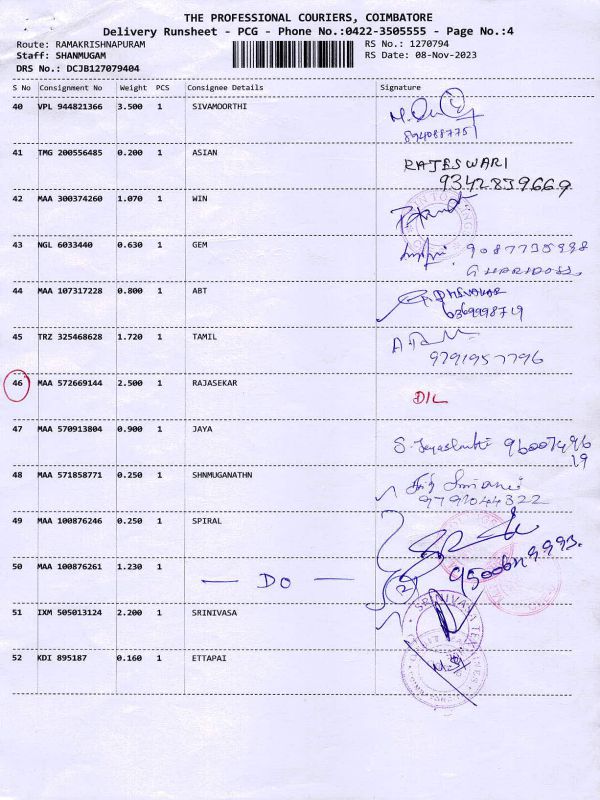 THE PROFESSIONAL COURIERS, COIMBATORE
Delivery Runsheet - PCG - Phone No.:0422-3505555 - Page No.:4
Route: RAMAKRISHNAPURAM RS No.: 1270794
Staff: SHANMUGAM RS Date: 08-Nov-2023
DRS No.: DCJB127079404
S No Consignment No Weight PCS Consignee Details Signature
40 VPL 944821366 3.500 1 SIVAMOORTHI
41 TMG 200556485 0.200 1 ASIAN RAJESWARI
9342839669
42 MAA 300374260 1.070 1 WIN
43 NGL 6033440 0.630 1 GEM
G HARIDOSS
44 MAA 107317228 0.800 1 ABT
45 TRZ 325468628 1.720 1 TAMIL
9791957796
46 MAA 572669144 2.500 1 RAJASEKAR DIL
47 MAA 570913804 0.900 1 JAYA
48 MAA 571858771 0.250 1 SHNMUGANATHN
9791044322
49 MAA 100876246 0.250 1 SPIRAL
50 MAA 100876261 1.230 1 — DO —
2
51 IXM 505013124 2.200 1 SRINIVASA
SRINIVASA TEX
52 KDI 895187 0.160 1 ETTAPAI